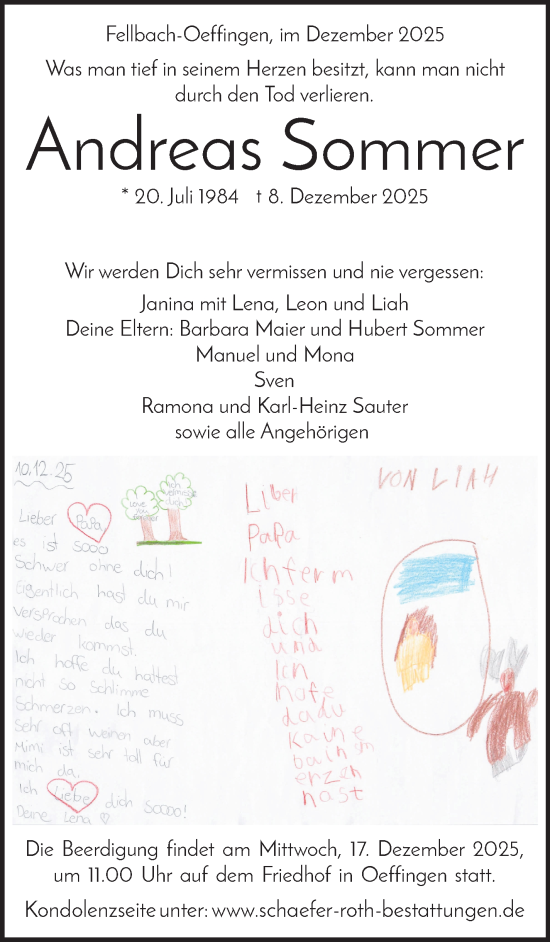 Fellbach-Oeffingen, im Dezember 2025
Was man tief in seinem Herzen besitzt, kann man nicht
durch den Tod verlieren.
Andreas Sommer
* 20. Juli 1984 † 8. Dezember 2025
Wir werden Dich sehr vermissen und nie vergessen:
Janina mit Lena, Leon und Liah
Deine Eltern: Barbara Maier und Hubert Sommer
Manuel und Mona
Sven
Ramona und Karl-Heinz Sauter
sowie alle Angehörigen
10.12.25
Lieber PaPa,
es ist sooo
Schwer ohne dich!
Eigentlich hast du mir
versprochen das du
wieder kommst.
Ich hoffe du hattest
nicht so schlimme
Schmerzen. Ich muss
Sehr oft weinen aber
Mimi ist sehr toll für
mich da.
Ich Liebe dich Soooo!
Deine Lena
Love
you
forever
ich
vermisse
dich
Liber
PaPa
Ich ferm
isse
dich
und
Ich
hofe
dadu
Kaine
bain
erzen
hast
VON LIAH
Die Beerdigung findet am Mittwoch, 17. Dezember 2025,
um 11.00 Uhr auf dem Friedhof in Oeffingen statt.
Kondolenzseite unter: www.schaefer-roth-bestattungen.de